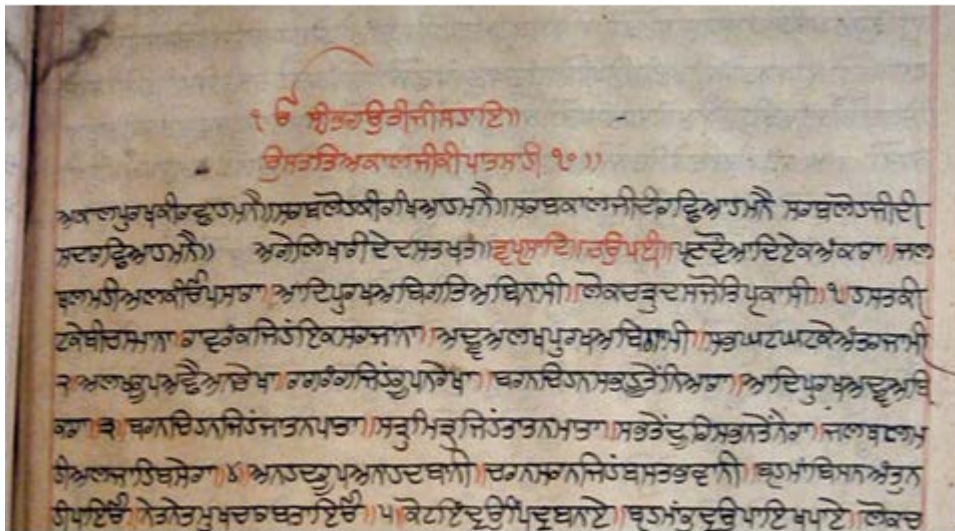 ੧ਓ ਸ੍ਰੀਭਗਉਤੀਜੀਸਹਾਇ॥
ਉਸਤਤਿਅਕਾਲਜੀਕੀਪਾਤਸਾਹੀ ੧੦॥
ਅਕਾਲਪੁਰਖਕੀਰਛਾਹਮਨੈ॥ਸਰਬਲੋਹਕੀਰਖਿਆਹਮਨੈ॥ਸਰਬਕਾਲਜੀਦੀਰਛਿਆਹਮਨੈ ਸਰਬਲੋਹਜੀਦੀ
ਸਦਰਛਿਆਹਮਨੈ॥ ਅਗੇਲਿਖਾਰੀਦੇਦਸਤਖਤ॥ਤ੍ਵਪ੍ਰਸਾਦਿ॥ਚਉਪਈ॥ਪ੍ਰਣਵੋਆਦਿਏਕਅੰਕਾਰਾ॥ਜਲ
ਥਲਮਹੀਅਲਕੀਓਪਸਾਰਾ॥ਆਦਿਪੁਰਖਅਬਿਗਤਿਅਬਿਨਾਸੀ॥ਲੋਕਚਤ੍ਰੁਦਸਜੋਤਿਪ੍ਰਕਾਸੀ॥੧॥ਹਸਤਕੀ
ਟਕੇਬੀਚਸਮਾਨਾ॥ਰਾਵਰੰਕਜਿਹਇਕਸਰਜਾਨਾ॥ਅਦ੍ਵੈਅਲਖਪੁਰਖਅਬਿਗਾਮੀ॥ਸਭਘਟਘਟਕੇਅੰਤਰਜਾਮੀ
੨॥ਅਲਖਰੂਪਅਛੈਅਭੇਖਾ॥ਰਾਗਰੰਗਜਿਹਰੂਪਨਰੇਖਾ॥ਬਰਨਚਿਹਨਸਭਹੂਤੇਨਿਆਰਾ॥ਆਦਿਪੁਰਖਅਦ੍ਵੈਅਬਿ
ਕਾਰਾ॥੩॥ਬਰਨਚਿਹਨਜਿਹਜਾਤਨਪਾਤਾ॥ਸਤ੍ਰੁਮਿਤ੍ਰਜਿਹਤਾਤਨਮਾਤਾ॥ਸਭਤੇਦੂਰਿਸਭਨਤੇਨੇਰਾ॥ਜਲਥਲਮ
ਹੀਅਲਜਾਹਿਬਸੇਰਾ॥੪॥ਅਨਹਦਰੂਪਅਨਹਦਬਾਨੀ॥ਚਰਨਸਰਨਜਿਹਬਸਤਭਵਾਨੀ॥ਬ੍ਰਹਮਾਬਿਸਨਅੰਤੁਨ
ਹੀਪਾਇਓ॥ਨੇਤਨੇਤਮੁਖਚਾਰਬਤਾਇਓ॥੫॥ਕੋਟਇੰਦ੍ਰਉਪਿੰਦ੍ਰਬਨਾਏ॥ਬ੍ਰਹਮਾਰੁਦ੍ਰਉਪਾਇਖਪਾਏ॥ਲੋਕਚ